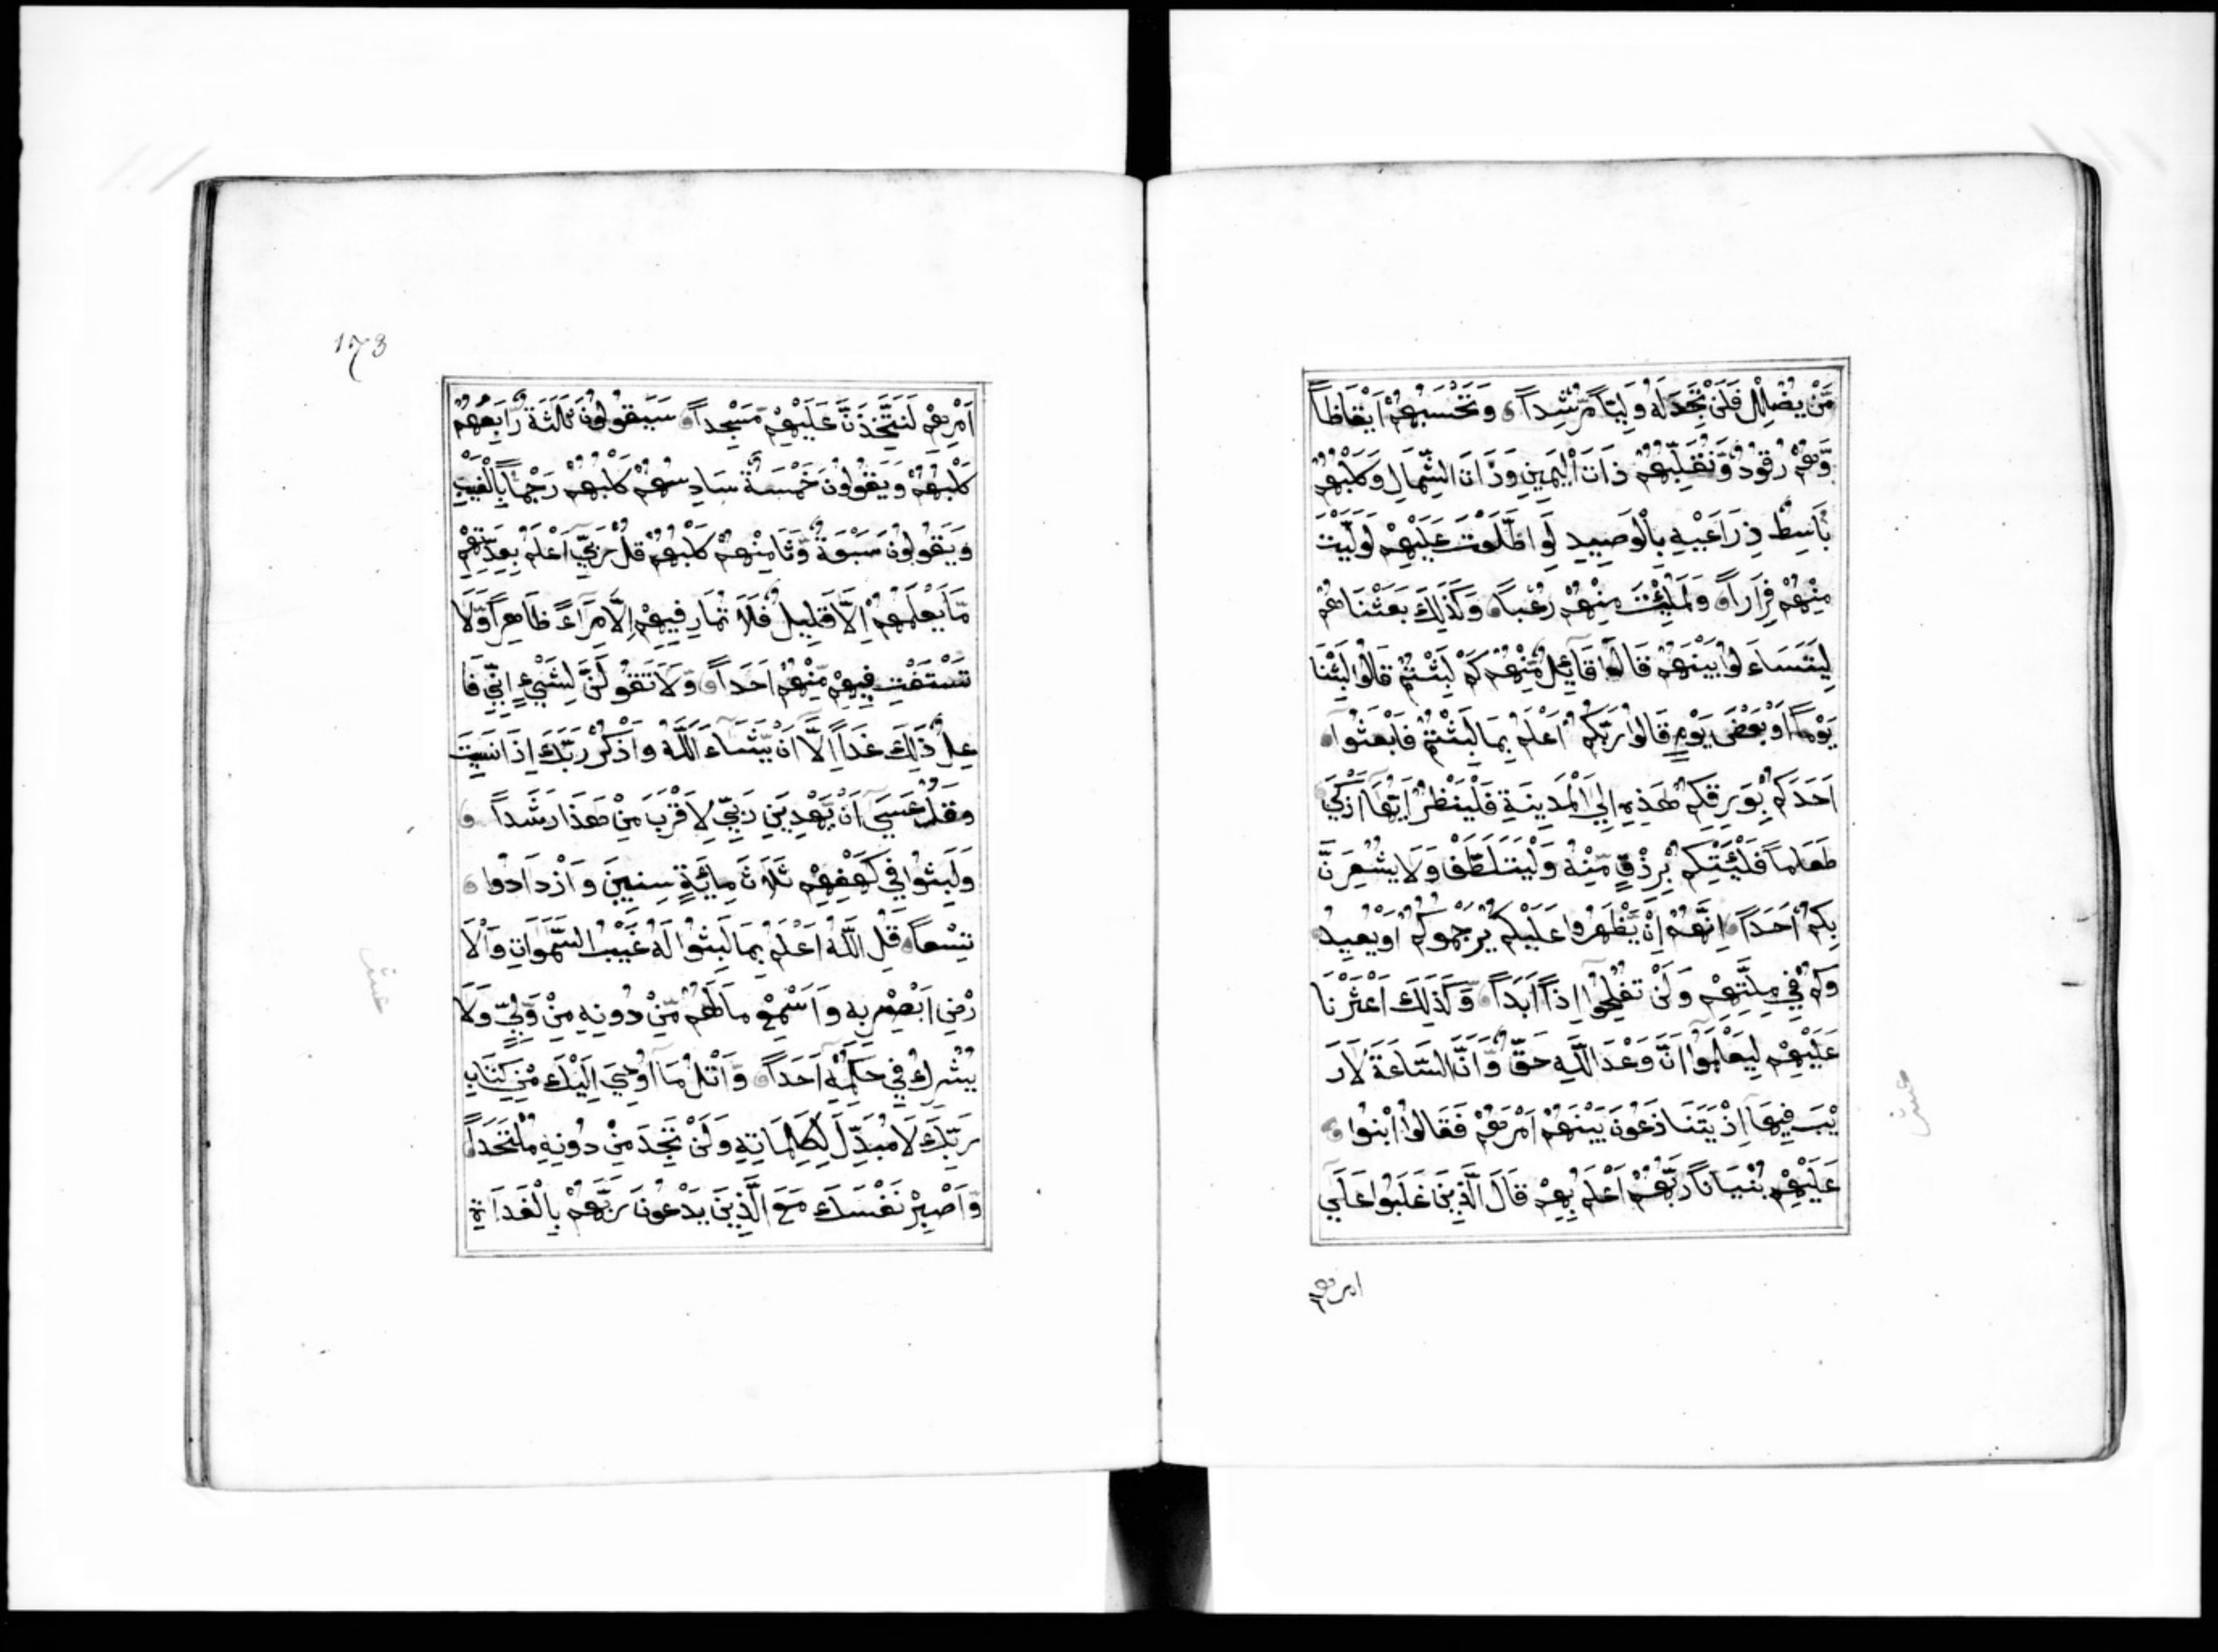 مَّنْ يُضْلِلْ فَلَنْ تَجِدَ لَهُ وَلِيّاً مُّرْشِداً وَتَحْسَبُهُمْ اَيْقَاظاً
وَّهُمْ رُقُودٌ وَّنُقَلِّبُهُمْ ذَاتَ الْيَمِينِ وَذَاتَ الشِّمَالِ وَكَلْبُهُمْ
بَاسِطٌ ذِرَاعَيْهِ بِالْوَصِيدِ لَوِ اطَّلَعْتَ عَلَيْهِمْ لَوَلَّيْتَ
مِنْهُمْ فِرَاراً وَلَمُلِئْتَ مِنْهُمْ رُعْباً وَكَذَلِكَ بَعَثْنَاهُمْ
لِيَتَسَاءَلُوا بَيْنَهُمْ قَالَ قَآئِلٌ مِّنْهُمْ كَمْ لَبِثْتُمْ قَالُوا لَبِثْنَا
يَوْماً اَوْ بَعْضَ يَوْمٍ قَالُوا رَبُّكُمْ اَعْلَمُ بِمَا لَبِثْتُمْ فَابْعَثُوآ
اَحَدَكُمْ بِوَرِقِكُمْ هَذِهِ اِلَي الْمَدِينَةِ فَلْيَنْظُرْ اَيُّهَآ اَزْكَي
طَعَاماً فَلْيَئْتِكُمْ بِرِزْقٍ مِّنْهُ وَلْيَتَلَطَّفْ وَلَا يُشْعِرَنَّ
بِكُمْ اَحَداً اِنَّهُمْ اِنْ يَّظْهَرُوا عَلَيْكُمْ يَرْجُمُوكُمْ اَوْ يُعِيدُ
وكُمْ فِي مِلَّتِهِمْ وَلَنْ تُفْلِحُوآ اِذاً اَبَداً وَّكَذَلِكَ اَعْثَرْنَا
عَلَيْهِمْ لِيَعْلَمُوآ اَنَّ وَعْدَ اللَّهِ حَقٌّ وَّاَنَّ السَّاعَةَ لَا رَ
يْبَ فِيهَآ اِذْ يَتَنَازَعُونَ بَيْنَهُمْ اَمْرَهُمْ فَقَالُوا ابْنُوا
عَلَيْهِمْ بُنْيَاناً رَبُّهُمْ اَعْلَمُ بِهِمْ قَالَ الَّذِينَ غَلَبُوا عَلَي
امرهم
173
اَمْرِهِمْ لَنَتَّخِذَنَّ عَلَيْهِمْ مَّسْجِداً سَيَقُولُونَ ثَلَثَةٌ رَّابِعُهُمْ
كَلْبُهُمْ وَيَقُولُونَ خَمْسَةٌ سَادِسُهُمْ كَلْبُهُمْ رَجْماً بِالْغَيْبِ
وَيَقُولُونَ سَبْعَةٌ وَّثَامِنُهُمْ كَلْبُهُمْ قُلْ رَبِّي اَعْلَمُ بِعِدَّتِهِمْ
مَّا يَعْلَمُهُمْ اِلَّا قَلِيلٌ فَلَا تُمَارِ فِيهِمْ اِلَّا مِرَآءً ظَاهِراً وَّلَا
تَسْتَفْتِ فِيهِمْ مِّنْهُمْ اَحَداً وَلَا تَقُولَنَّ لِشَيْءٍ اِنِّي فَا
عِلٌ ذَلِكَ غَداً اِلَّآ اَنْ يَّشَآءَ اللَّهُ وَاذْكُرْ رَبَّكَ اِذَا نَسِيتَ
وَقُلْ عَسَيَ اَنْ يَّهْدِيَنِ رَبِّي لِاَقْرَبَ مِنْ هَذَا رَشَداً
وَلَبِثُوا فِي كَهْفِهِمْ ثَلَاثَ مِائَةٍ سِنِينَ وَازْدَادُوا
تِسْعاً قُلِ اللَّهُ اَعْلَمُ بِمَا لَبِثُوا لَهُ غَيْبُ السَّمَوَاتِ وَالْاَ
رْضِ اَبْصِرْ بِهِ وَاَسْمِعْ مَا لَهُمْ مِّنْ دُونِهِ مِنْ وَّلِيٍّ وَلَا
يُشْرِكُ فِي حُكْمِهِ اَحَداً وَاتْلُ مَآ اُوحِيَ اِلَيْكَ مِنْ كِتَابِ
رَبِّكَ لَا مُبَدِّلَ لِكَلِمَاتِهِ وَلَنْ تَجِدَ مِنْ دُونِهِ مُلْتَحَداً
وَاصْبِرْ نَفْسَكَ مَعَ الَّذِينَ يَدْعُونَ رَبَّهُمْ بِالْغَدَاةِ